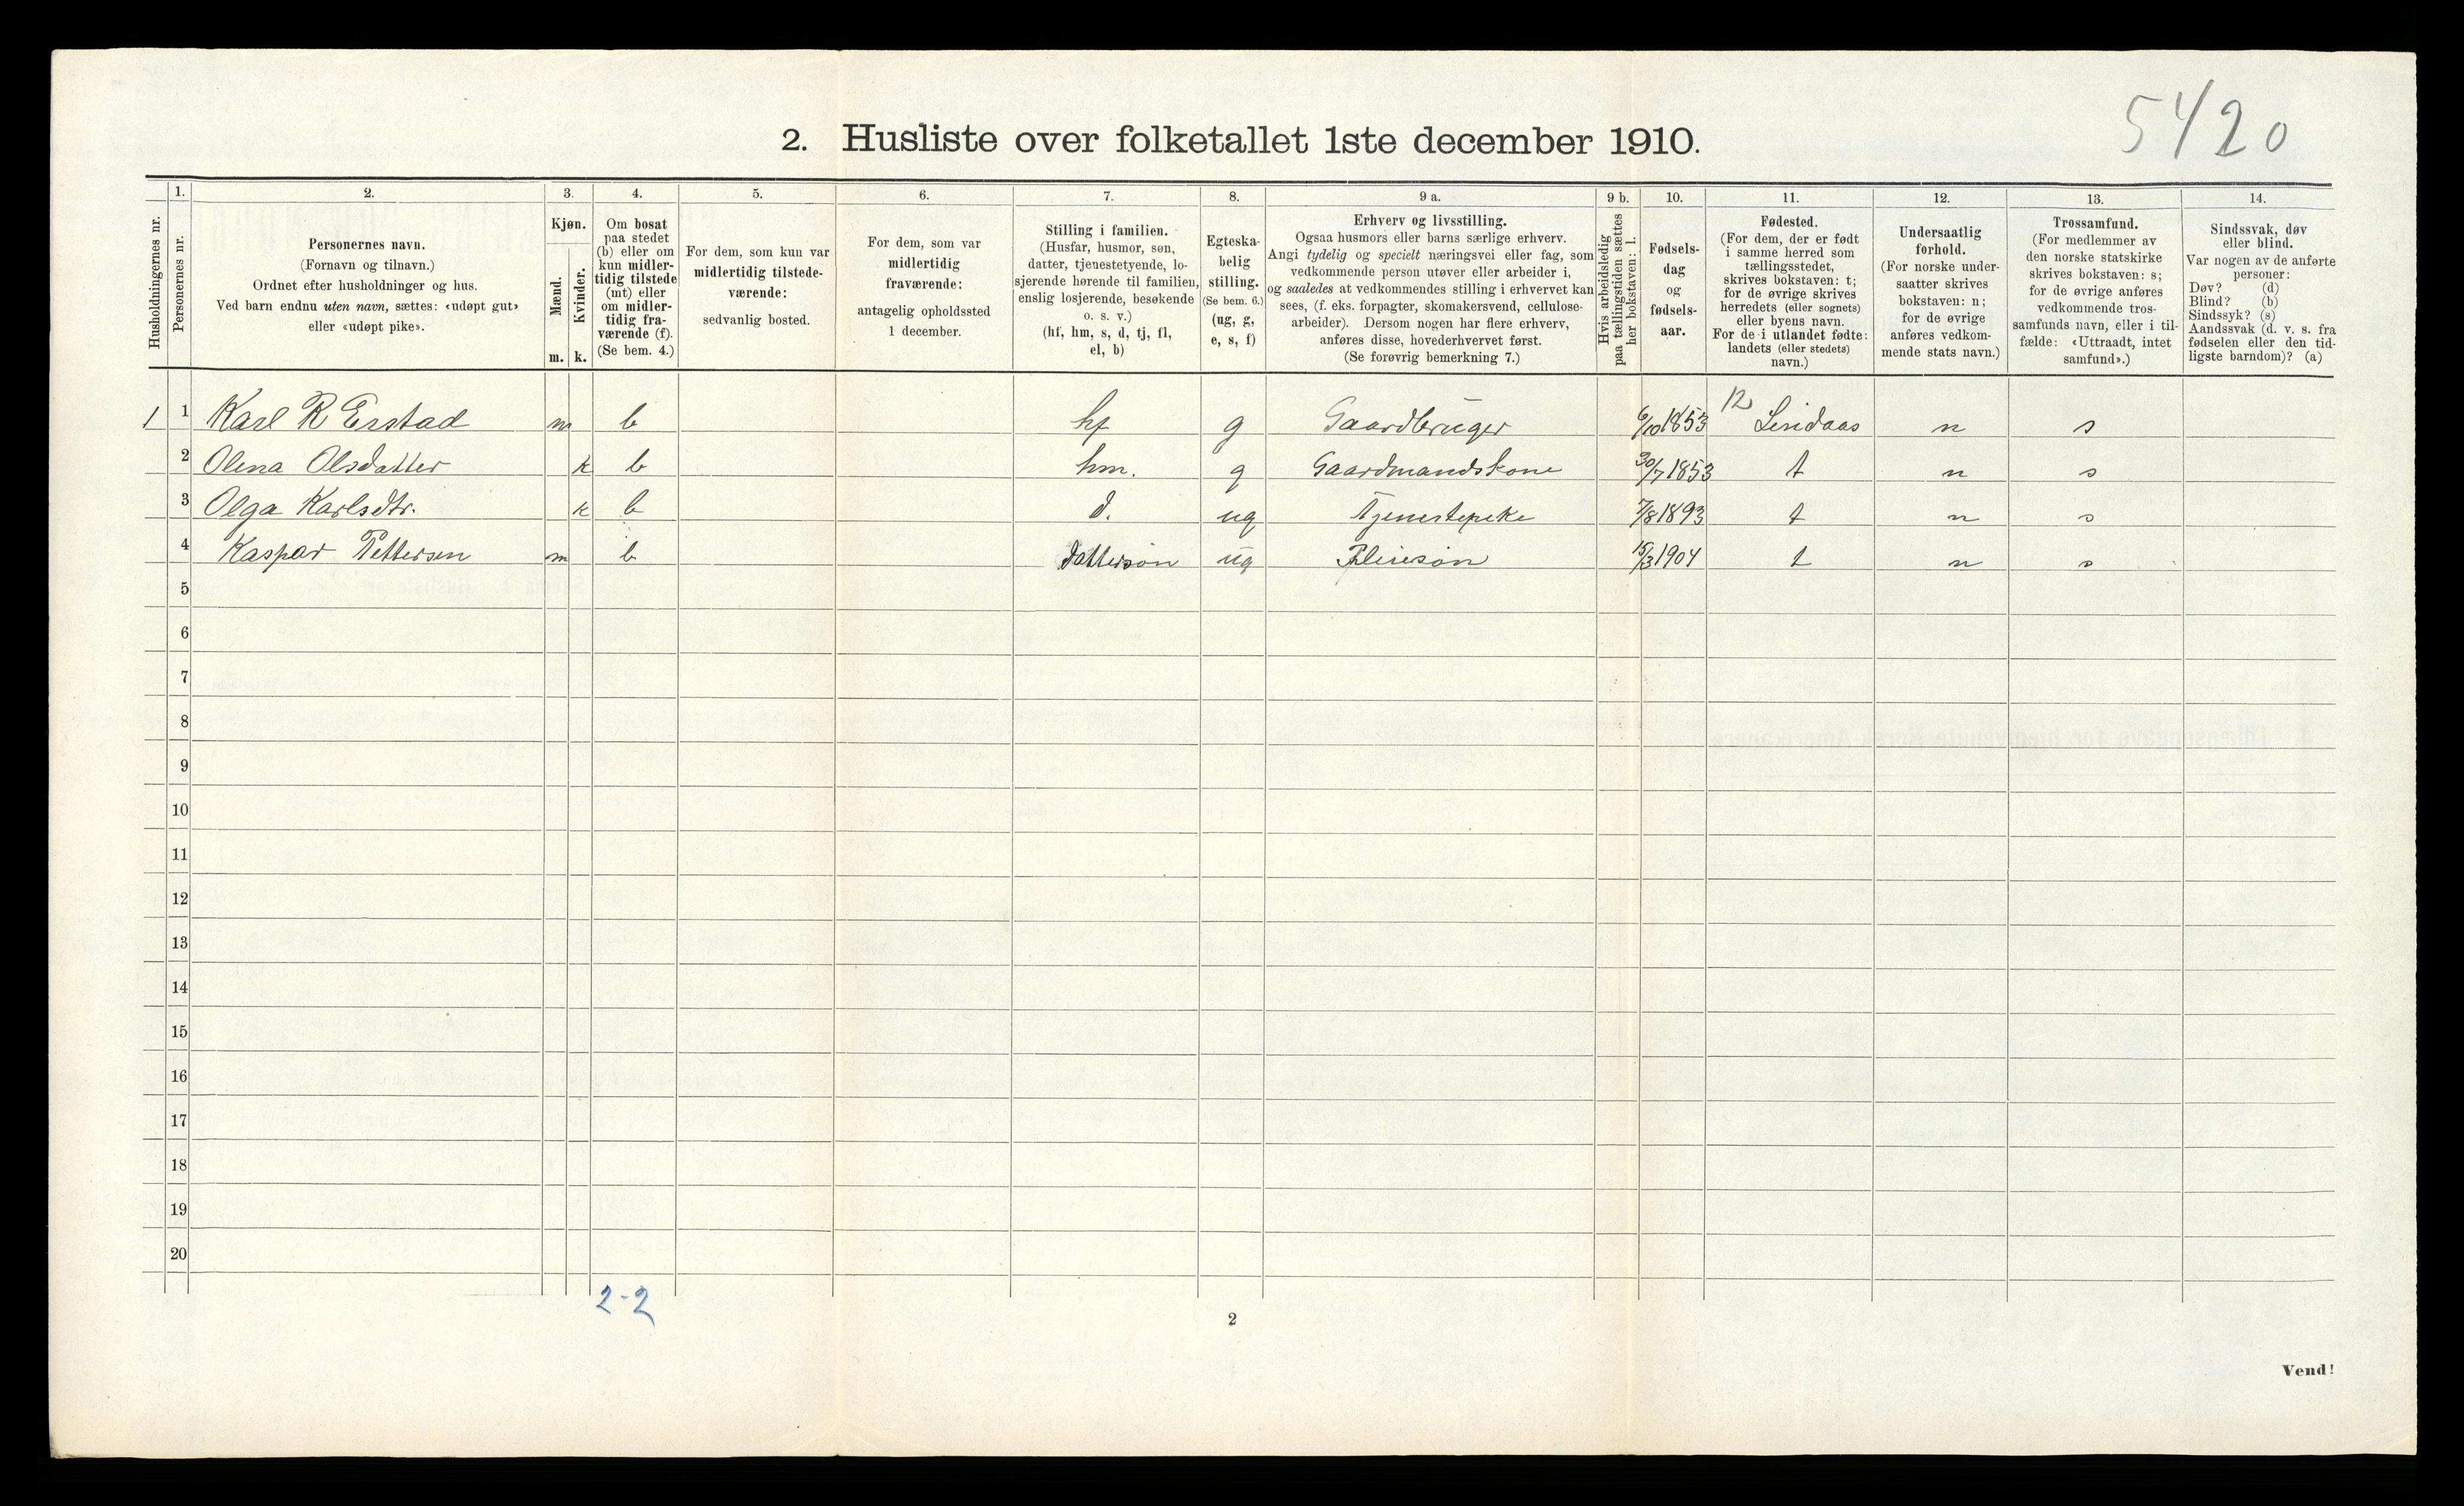 5420
2. Husliste over folketallet 1ste december 1910.
Husholdningernes nr.
1.
Personernes nr.
2.
Personernes navn.
(Fornavn og tilnavn.)
Ordnet efter husholdninger og hus.
Ved barn endnu uten navn, sættes: «udøpt gut»
eller «udøpt pike».
3.
Kjøn.
Mænd.
Kvinder.
m. k.
4.
Om bosat
paa stedet
(b) eller om
kun midler-
tidig tilstede
(mt) eller
om midler-
tidig fra-
værende (f).
(Se bem. 4.)
5.
For dem, som kun var
midlertidig tilstede-
værende:
sedvanlig bosted.
6.
For dem, som var
midlertidig
fraværende:
antagelig opholdssted
1 december.
7.
Stilling i familien.
(Husfar, husmor, søn,
datter, tjenestetyende, lo-
sjerende hørende til familien,
enslig losjerende, besøkende
o. s. v.)
(hf, hm, s, d, tj, fl,
el, b)
8.
Egteska-
belig
stilling.
(Se bem. 6.)
(ug, g,
e, s, f)
9 a.
Erhverv og livsstilling.
Ogsaa husmors eller barns særlige erhverv.
Angi tydelig og specielt næringsvei eller fag, som
vedkommende person utøver eller arbeider i,
og saaledes at vedkommendes stilling i erhvervet kan
sees, (f. eks. forpagter, skomakersvend, cellulose-
arbeider). Dersom nogen har flere erhverv,
anføres disse, hovederhvervet først.
(Se forøvrig bemerkning 7.)
9 b.
Hvis arbeidsledig
paa tællingstiden sættes
her bokstaven: l.
10.
Fødsels-
dag
og
fødsels-
aar.
11.
Fødested.
(For dem, der er født
i samme herred som
tællingsstedet,
skrives bokstaven: t;
for de øvrige skrives
herredets (eller sognets)
eller byens navn.
For de i utlandet fødte:
landets (eller stedets)
navn.)
12.
Undersaatlig
forhold.
(For norske under-
saatter skrives
bokstaven: n;
for de øvrige
anføres vedkom-
mende stats navn.)
13.
Trossamfund.
(For medlemmer av
den norske statskirke
skrives bokstaven: s;
for de øvrige anføres
vedkommende tros-
samfunds navn, eller i til-
fælde: «Uttraadt, intet
samfund».)
14.
Sindssvak, døv
eller blind.
Var nogen av de anførte
personer:
Døv? (d)
Blind? (b)
Sindssyk? (s)
Aandssvak (d. v. s. fra
fødselen eller den tid-
ligste barndom)? (a)
1 1 Karl R Erstad m b hf g Gaardbruger 6/10 1853 12 Lindaas n s
2 Olena Olsdatter k b hm. g Gaardmandskone 30/7 1853 t n s
3 Olga Karlsdtr. k b d. ug Tjenestepike 7/8 1893 t n s
4 Kaspar Pettersen m b dattersøn ug 15/3 1904 t n s
5
6
7
8
9
10
11
12
13
14
15
16
17
18
19
20
2-2
2
Vend!